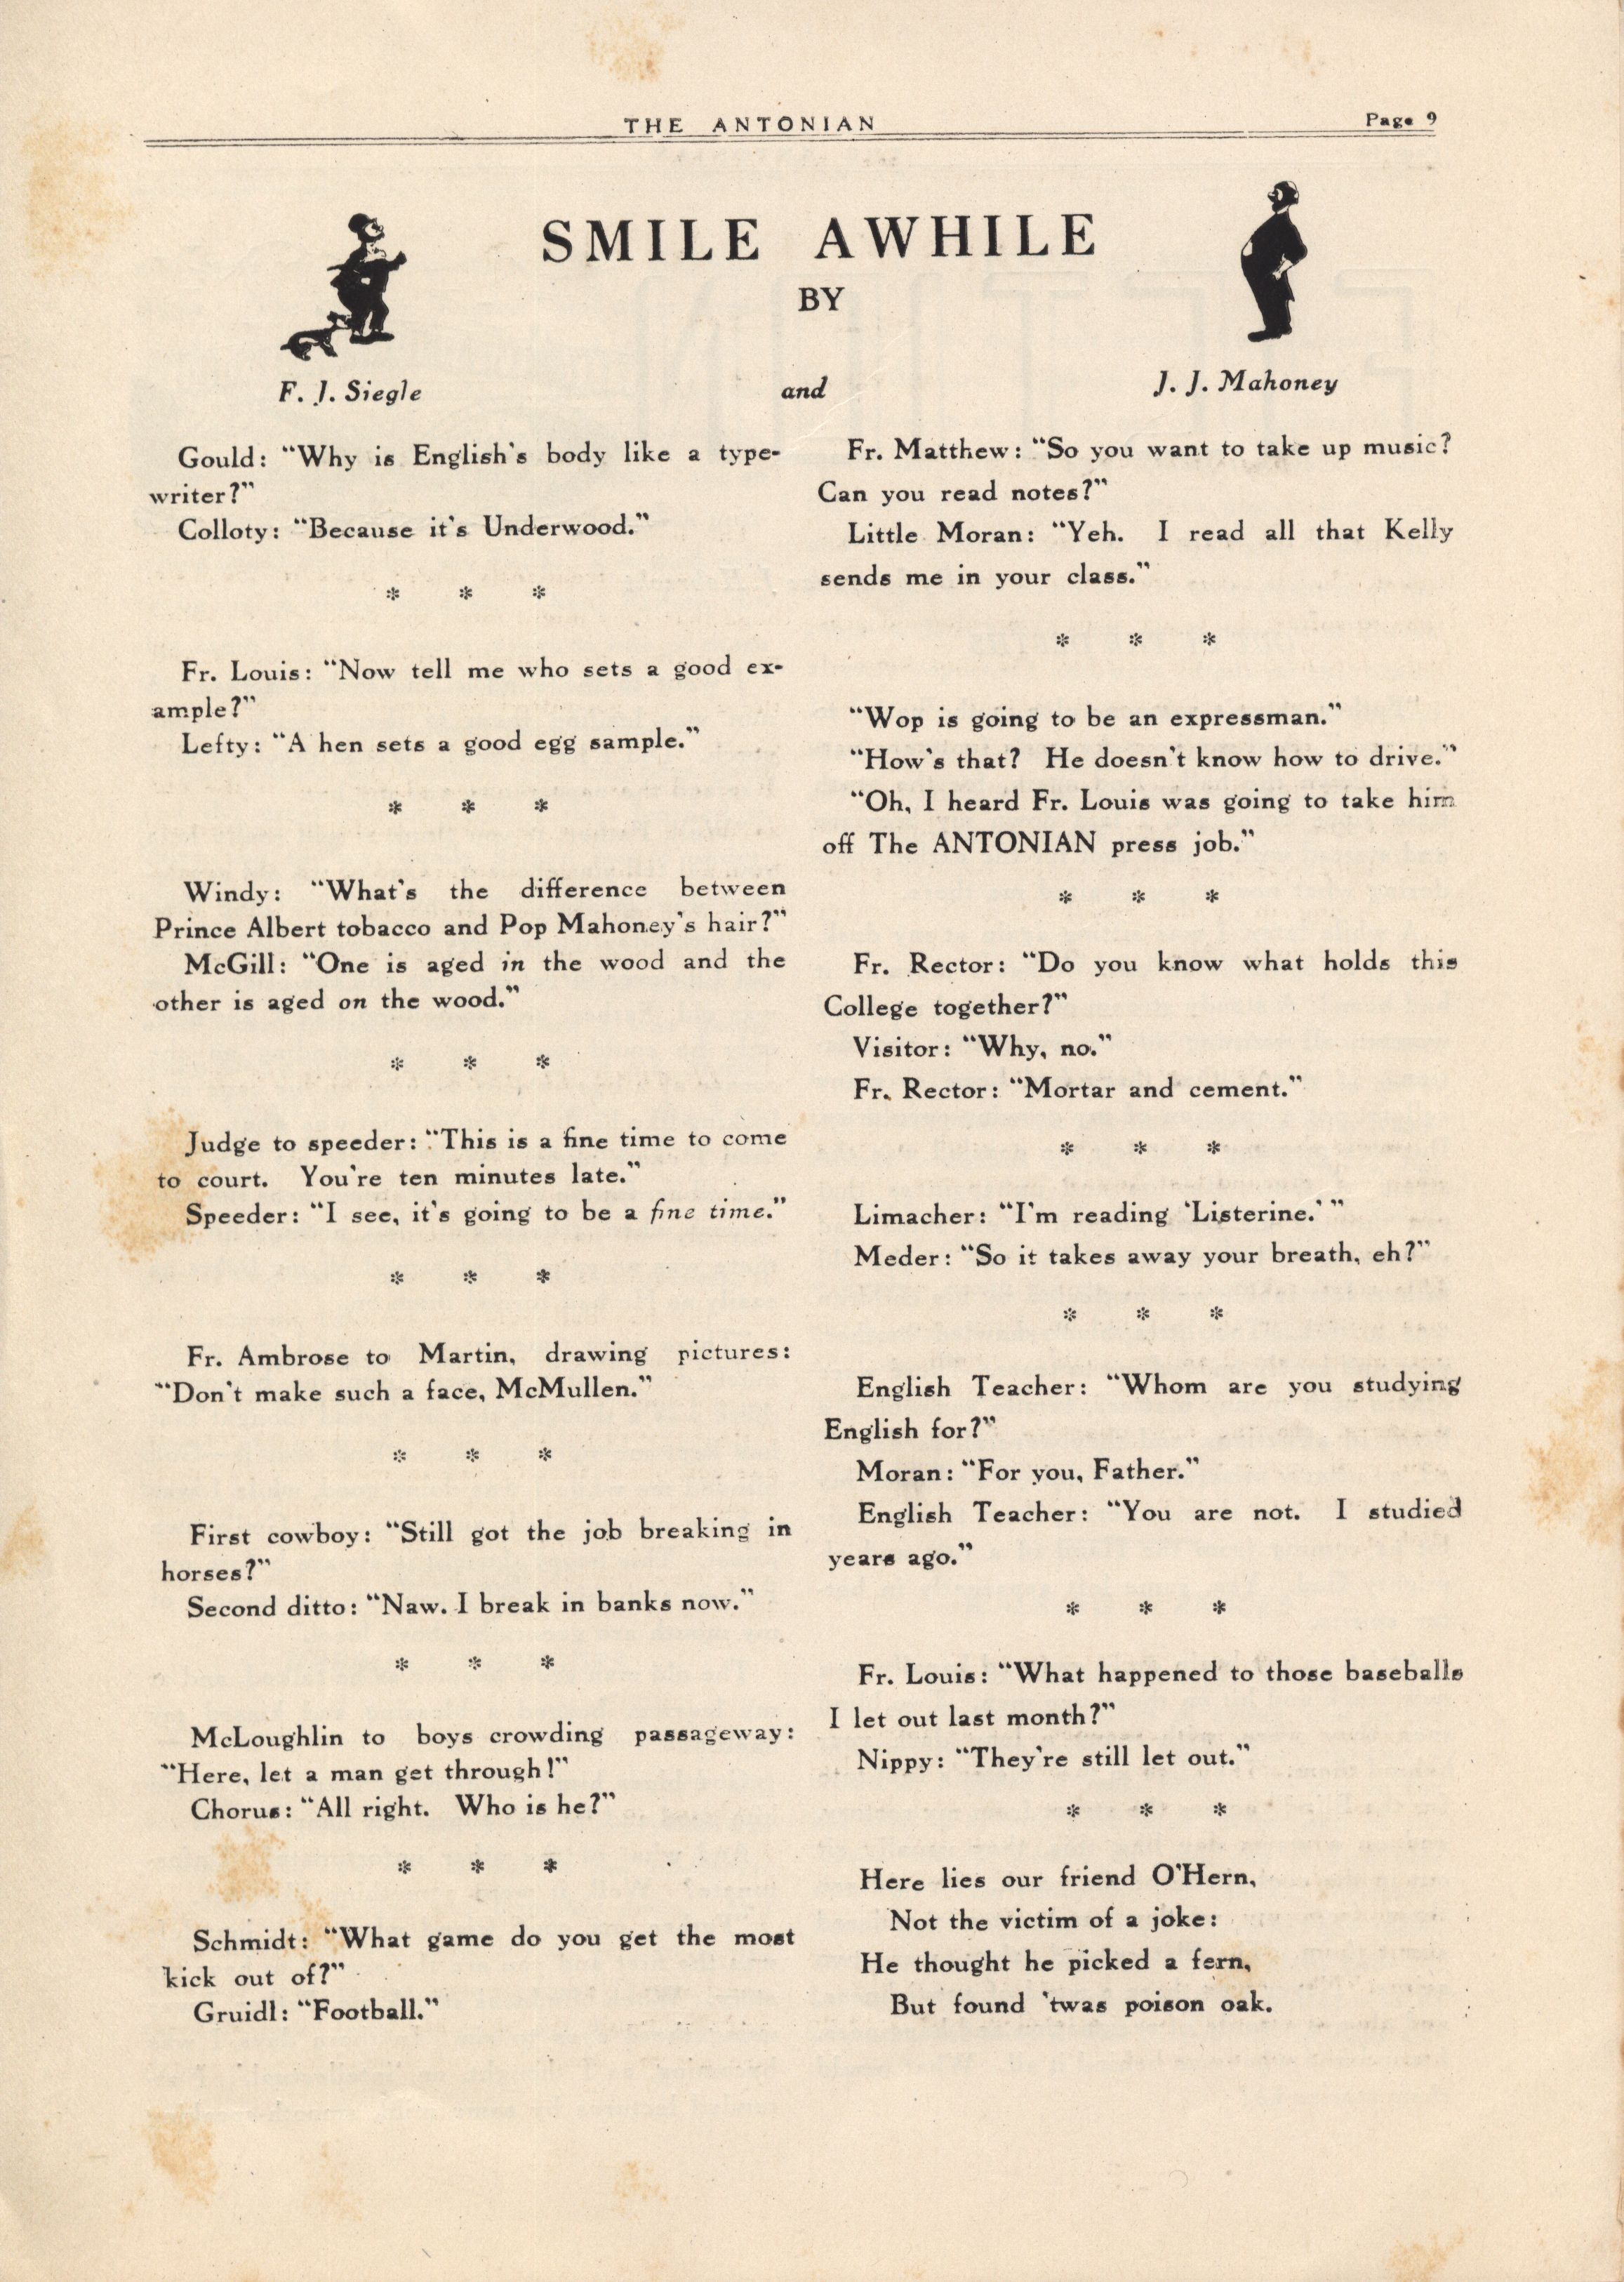 THE ANTONIAN
Page 9
SMILE AWHILE
BY
F. J. Siegle
and
J. J. Mahoney
Gould: “Why is English's body like a type-
writer?”
Colloty: “Because it's Underwood.”
* * *
Fr. Louis: “Now tell me who sets a good ex-
ample?”
Lefty: “A hen sets a good egg sample.”
* * *
Windy: “What's the difference between
Prince Albert tobacco and Pop Mahoney's hair?”
McGill: “One is aged in the wood and the
other is aged on the wood.”
* * *
Judge to speeder: “This is a fine time to come
to court. You're ten minutes late.”
Speeder: “I see, it's going to be a fine time.”
* * *
Fr. Ambrose to Martin, drawing pictures:
“Don't make such a face, McMullen.”
* * *
First cowboy: “Still got the job breaking in
horses?”
Second ditto: “Naw. I break in banks now.”
* * *
McLoughlin to boys crowding passageway:
“Here, let a man get through!”
Chorus: “All right. Who is he?”
* * *
Schmidt: “What game do you get the most
kick out of?”
Gruidl: “Football.”
Fr. Matthew: “So you want to take up music?
Can you read notes?”
Little Moran: “Yeh. I read all that Kelly
sends me in your class.”
* * *
“Wop is going to be an expressman.”
“How's that? He doesn't know how to drive.”
“Oh, I heard Fr. Louis was going to take him
off The ANTONIAN press job.”
* * *
Fr. Rector: “Do you know what holds this
College together?”
Visitor: “Why, no.”
Fr. Rector: “Mortar and cement.”
* * *
Limacher: “I'm reading 'Listerine.' ”
Meder: “So it takes away your breath, eh?”
* * *
English Teacher: “Whom are you studying
English for?”
Moran: “For you, Father.”
English Teacher: “You are not. I studied
years ago.”
* * *
Fr. Louis: “What happened to those baseballs
I let out last month?”
Nippy: “They're still let out.”
* * *
Here lies our friend O'Hern,
Not the victim of a joke:
He thought he picked a fern,
But found 'twas poison oak.